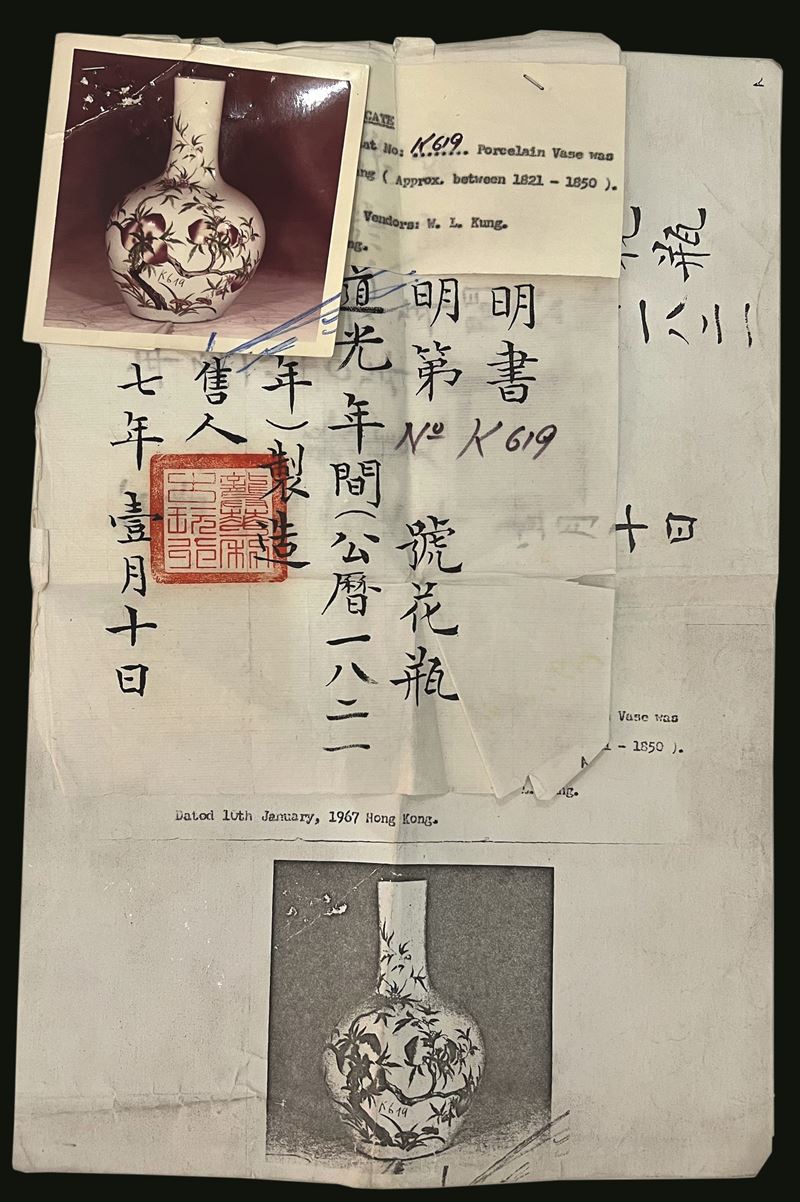 K619
CATE
at No: K619. Porcelain Vase was
ng ( Approx. between 1821 - 1850 ).
Vendors: W. L. Kung.
ng.
瓶
一八二一
十日
明書
明第 No K619 號花瓶
道光年間(公曆一八二一
年)製造
售人
七年壹月十日
Vase was
1 - 1850 ).
ng.
Dated 10th January, 1967 Hong Kong.
K619